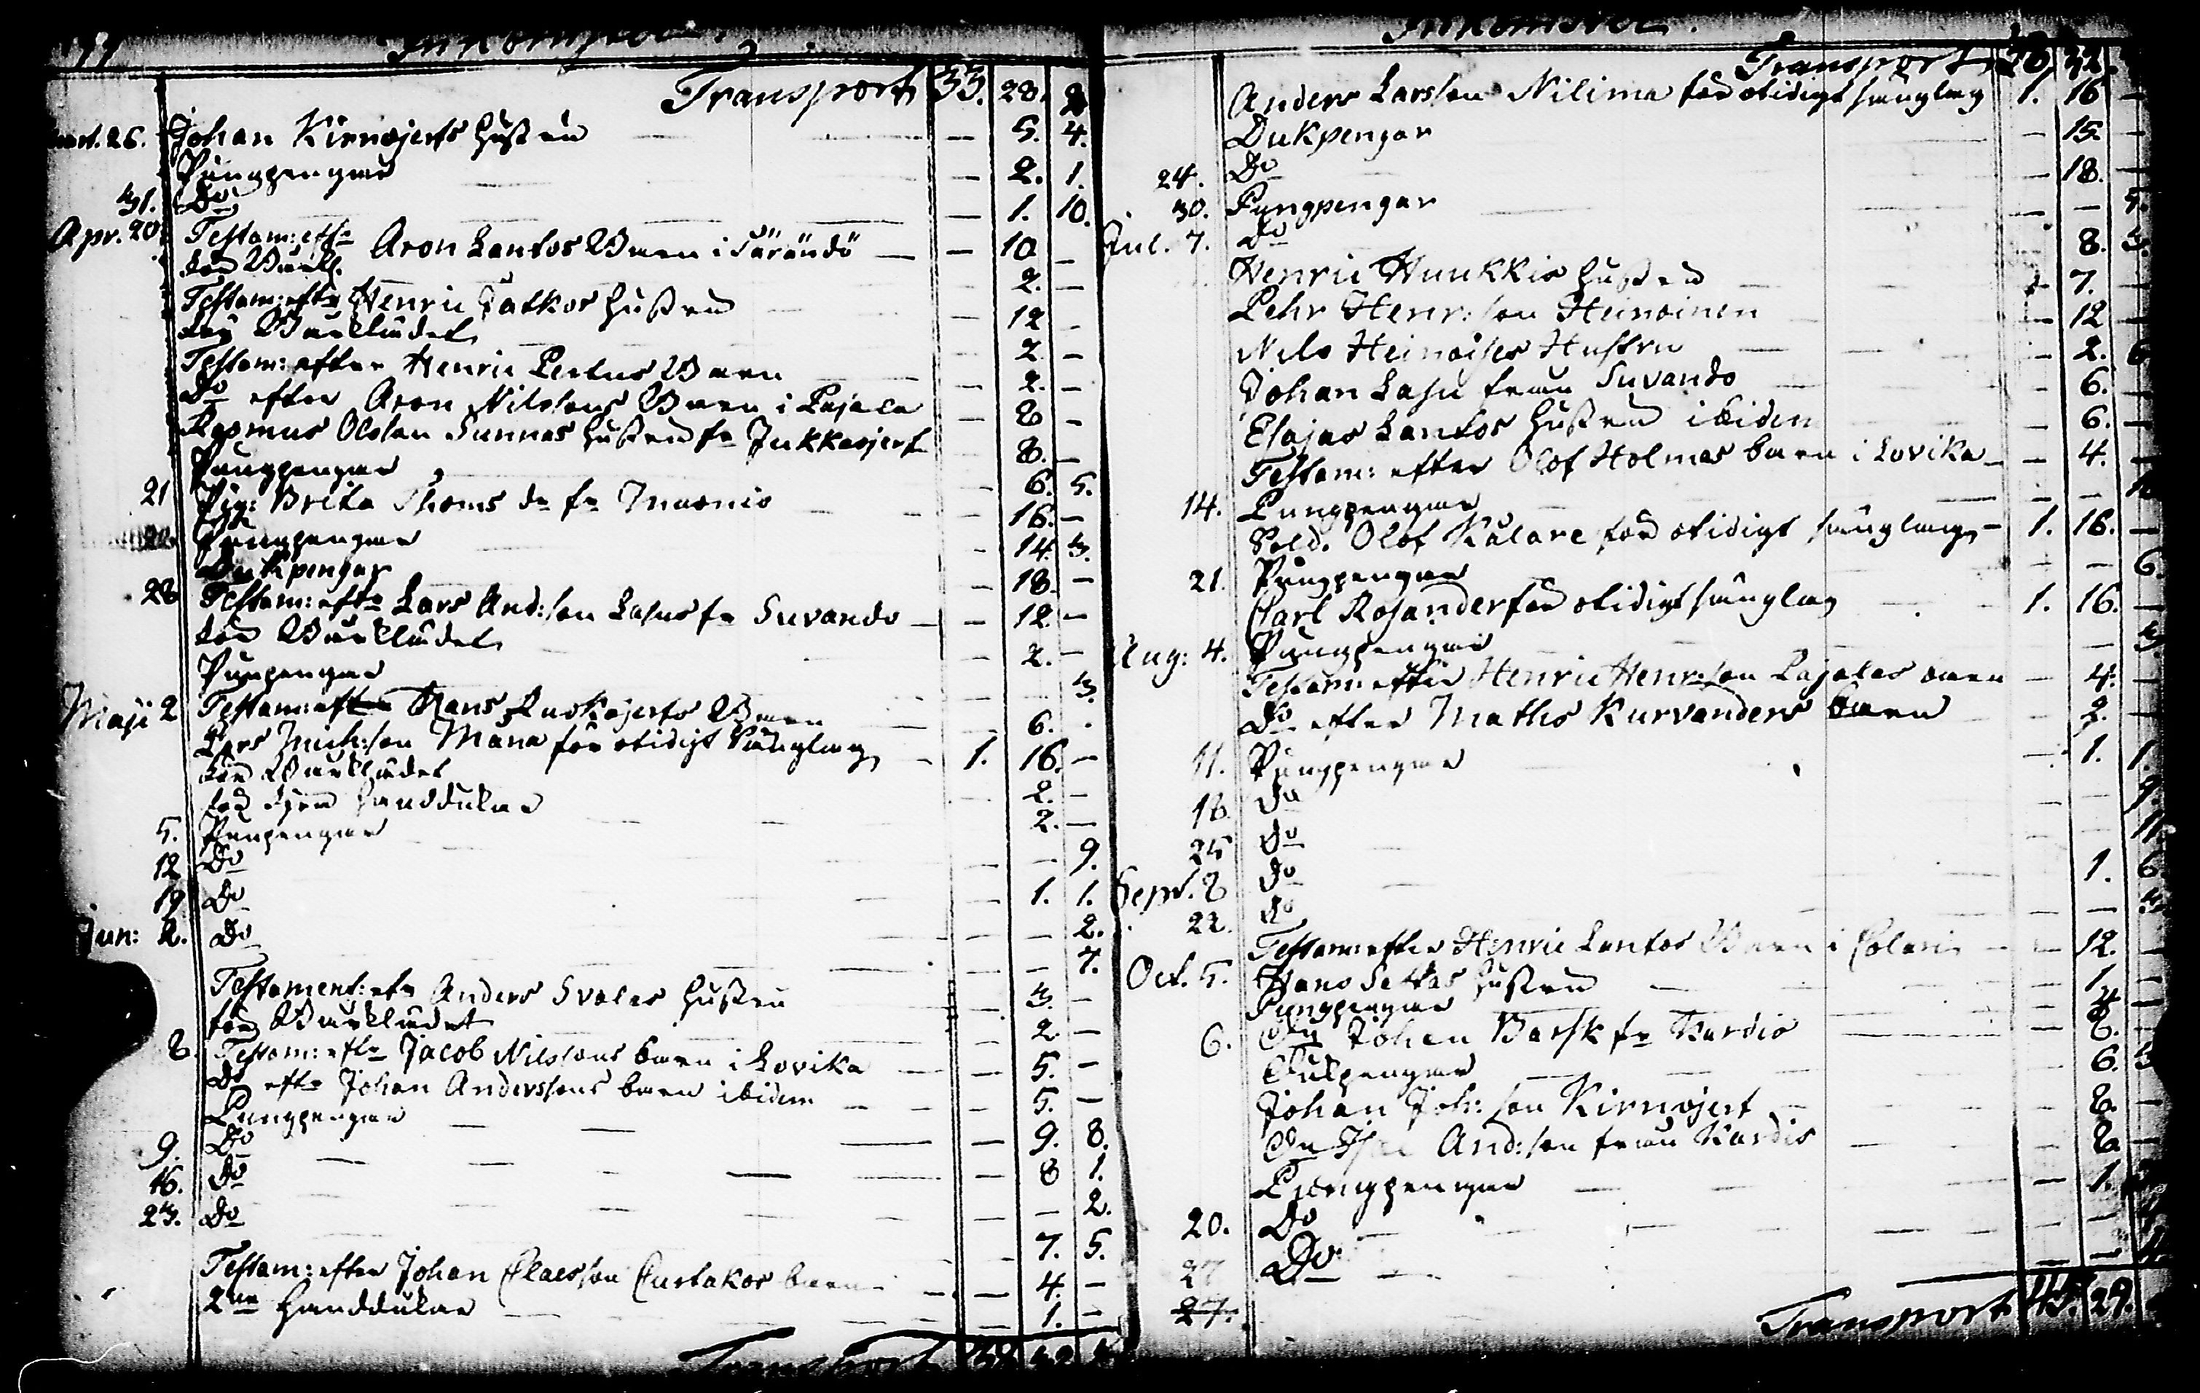 Inkomster.
Transport 33. 28. 2
Mart. 26. Johan Kirnojerfs Hustru — 5. 4.
Pungpengar — 2. 1.
31. Do — 1. 10.
Apr. 20. Testam: eftr Aron Lantos Barn i Tärändö — 10 —
för Bårkl. 2. —
Testam: eftr Henric Jatkos Hustru — 12 —
för Bårklädet 2. —
Testam: efter Henric Pertus Barn — 2. —
Do efter Aron Nilssons Barn i Pajala — 8 —
Rasmus Olsson Sunnas Hustru fr Jukkasjerf 8. —
Pungpengar — 6. 5.
21 Pig: Brita Thoms dr fr Muonio — 16. —
Pungpengar — 14. 3.
Dukpengar — 18. —
28 Testam: eftr Lars And:son Lasus fr Suvando — 12 —
för Bårklädet — 2. —
Pungpengar — 3.
Maji 2 Testam: efter Hans Ruokojerfs Barn — 6. .
Lars Mich:son Mana för otidigt Sänglag 1. 16. —
för Bårklädet 2. —
för Handdukar 2. —
5. Pungpengar — 9.
12 Do — 1. 1.
19 Do — 2.
Jun: 2. Do — 7.
Testament: eftr Anders Svalas Hustru — 3. —
för Bårklädet — 2. —
8. Testam: eftr Jacob Nilssons barn i Lovika — 5. —
Do eftr Johan Anderssons barn ibidem — 5. —
Pungpengar — 9. 8.
9. Do — 8 1.
16. Do — 2.
23. Do — 7. 5.
Testam: efter Johan Claesson barn — 4. —
2ne Handdukar — 1. —
Transport 38. 32.
Inkomster.
Transport 38. 32.
Anders Larsson Nilima för otidigt sänglag 1. 16 —
Dukpengar — 15. —
24. Do — 18. —
30. Pungpengar — — 5.
Jul. 7. Do 8. 3.
Henric Huukkis Hustru 7. —
Pehr Henr:son Heinoinen — 12 —
Nils Heinoises Hustru — 2. 6
Johan Lasu från Suvando — 6. —
Esajas Lantos Hustru ibidem — 6. —
Testam: efter Olof Holmas barn i Lovika — 4. —
14. Pungpengar — —
Sold. Olof Kålare för otidigt sänglag 1. 16. —
21. Pungpengar — — 6.
Carl Rosander för otidigt sänglag 1. 16. —
Aug: 4. Pungpengar — — 3
Testam: efter Henric Henr:son Pajalas barn — 4. —
Do efter Maths Kurvanders Barn — 2. —
11. Pungpengar — 1. 1.
18. Do — — 9.
25 Do — — 11.
Sept. 8 Do 1. 6
22. Do — — 3.
Testam: efter Henric Lantos Barn i Colari — 12. —
Oct. 5. Hans Hustru — 1. —
Pungpengar 4 —
6. Johan Barsk fr Kardis — 8. —
Pungpengar 6. 3
Johan Joh:son Kirnojerf — 8. —
And:son från Kardis — 8 —
Pungpengar — 1.
20. Do
27 Do
27.
Transport 45. 29.